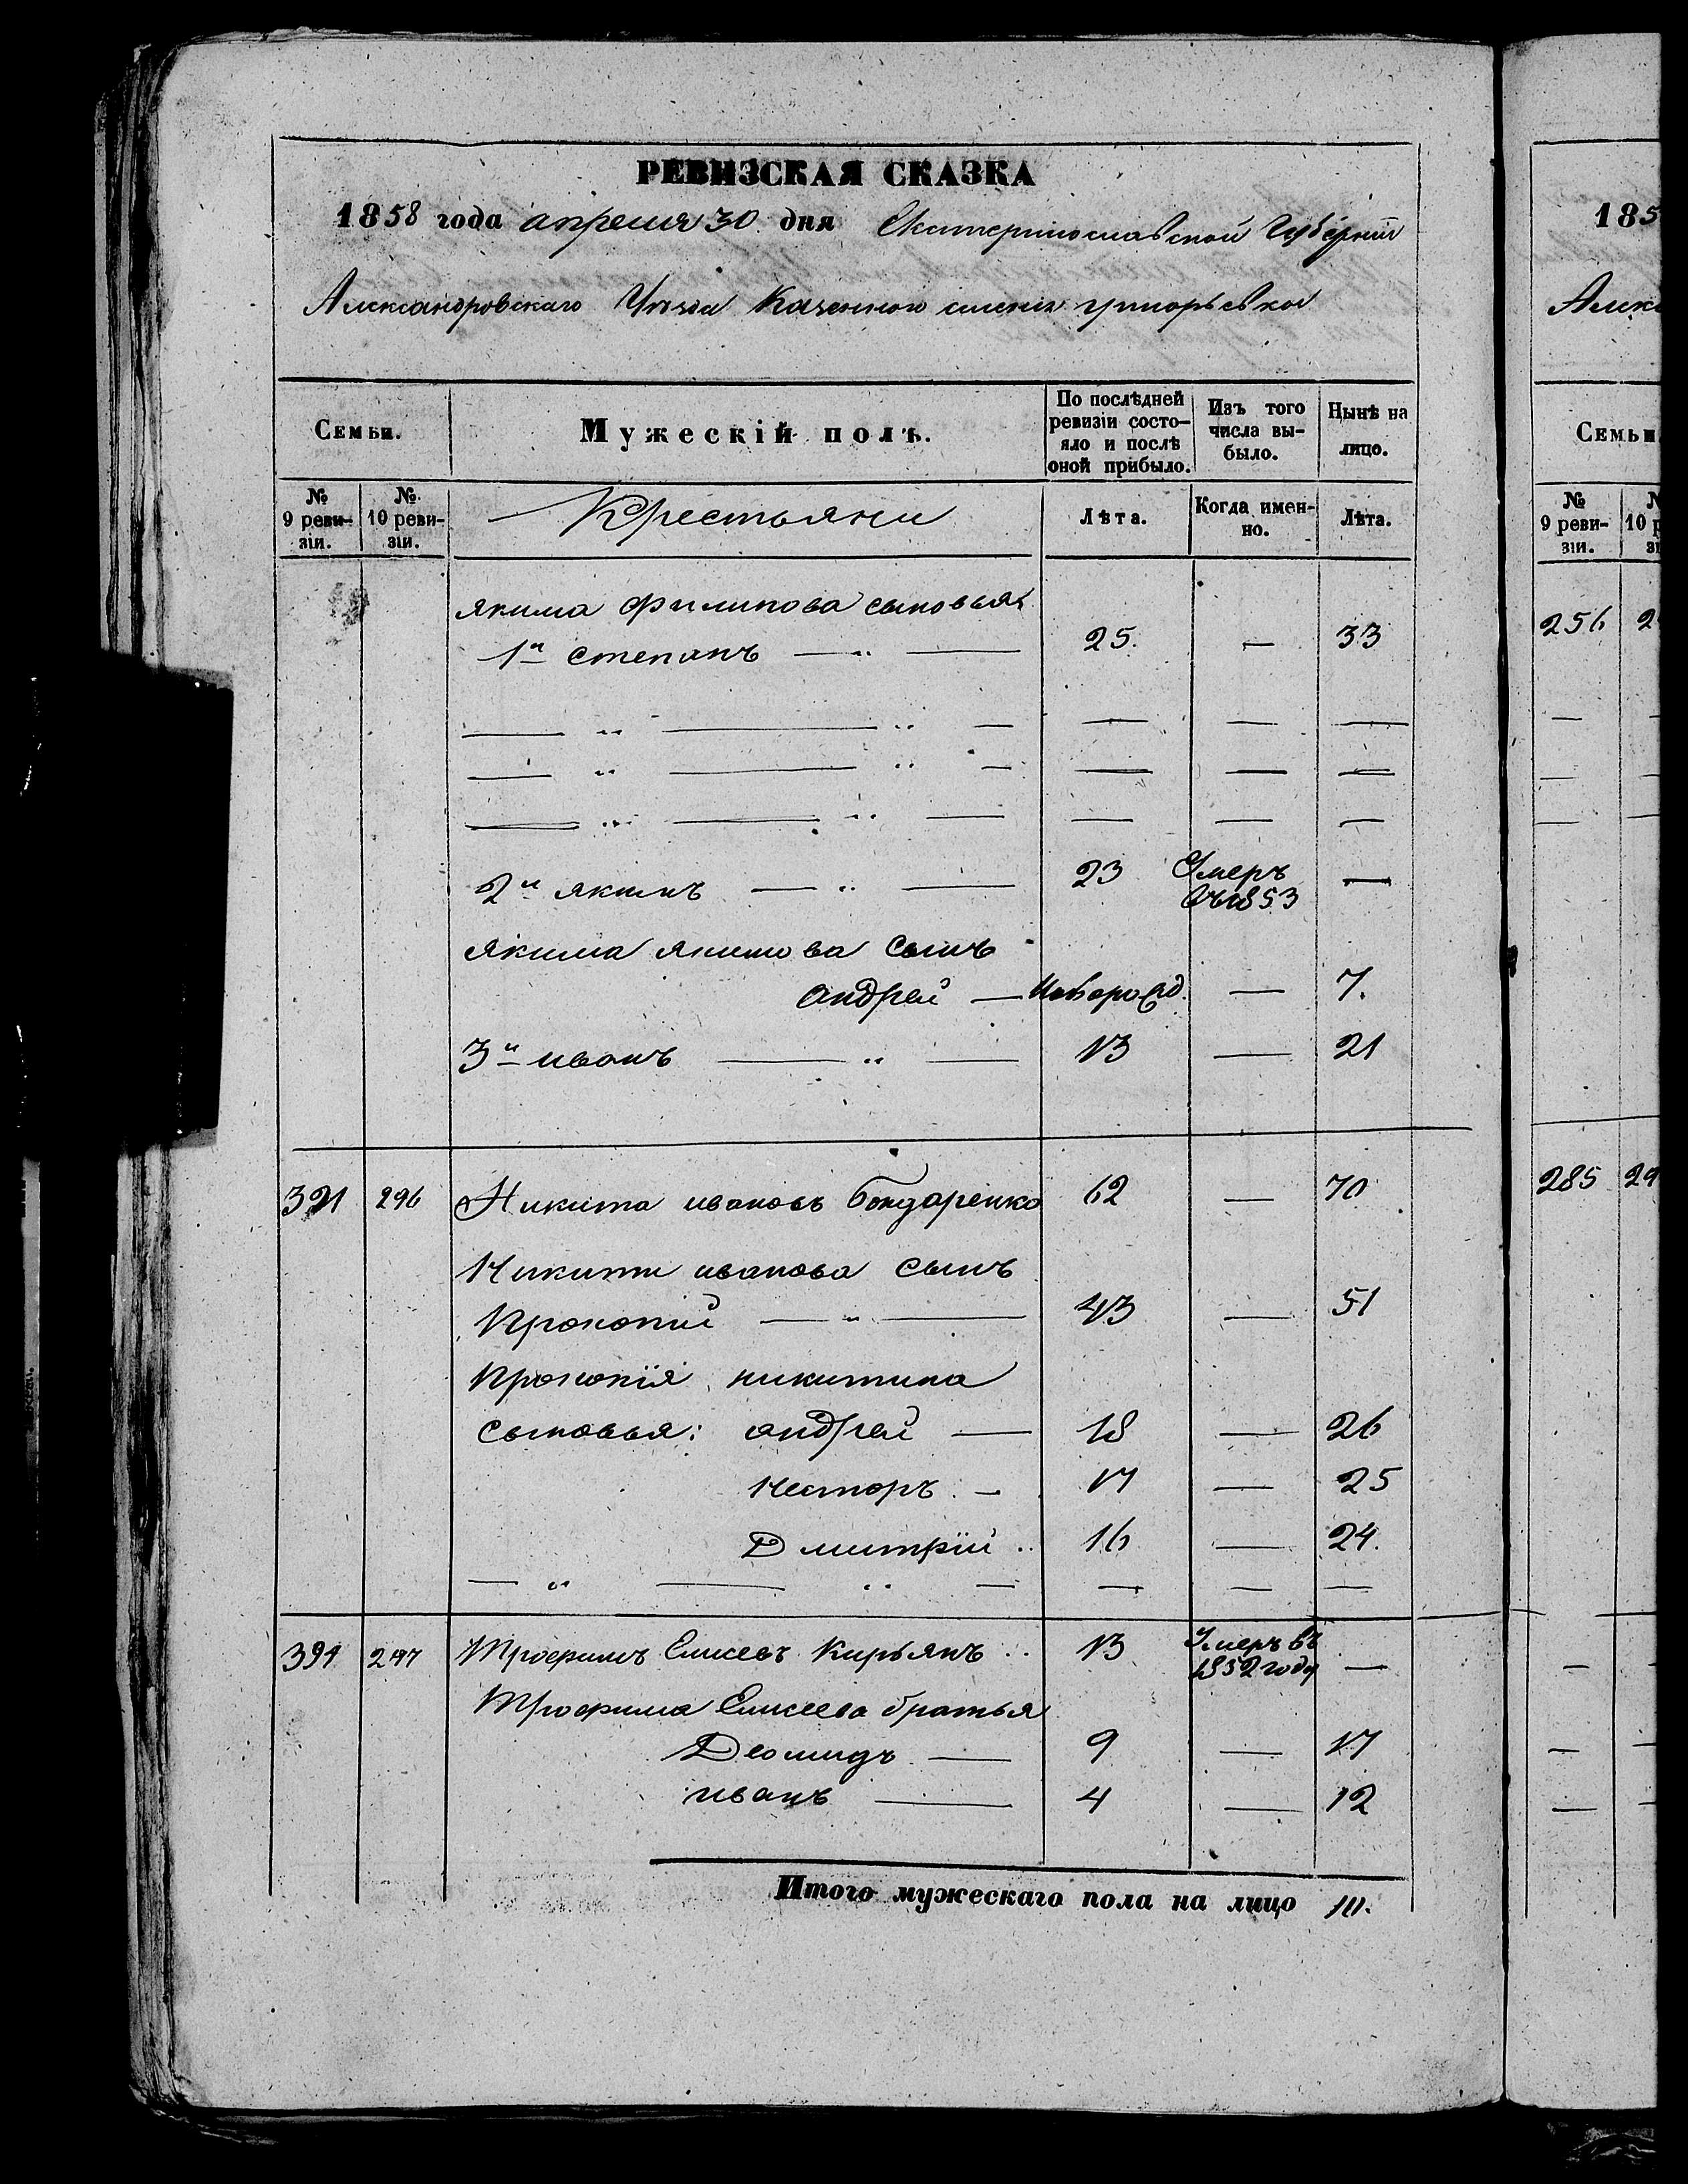 РЕВИЗСКАЯ СКАЗКА
1858 года апреля 30 дня Екатеринославской Губерніи
Александровскаго Уѣзда Казенного имения
Семьи.
Мужескій полъ.
По послѣдней ревизіи состояло и послѣ оной прибыло.
Изъ того числа выбыло.
Нынѣ на лицо.
№ 9 ревизіи.
№ 10 ревизіи.
Крестьяни
Лѣта.
Когда именно.
Лѣта.
Якима Филипова сыновья
1й Степанъ — " — 25. — 33
2й Якимъ — " — 23 Умеръ въ 1853 —
Якима Якимова сынъ
Андрей — Новорожд. — 7.
3й Иванъ — " — 13 — 21
321 296 Никита Ивановъ Бондаренко 62 — 70
Никиты Иванова сынъ
Прокопій — " — 43 — 51
Прокопія Никитина
сыновья: Андрей — 18 — 26
Несторъ — 17 — 25
Дмитрій .. 16 — 24.
391 297 Трофимъ Елисеевъ Кирьянъ .. 13 Умеръ въ 1852 году —
Трофима Елисеева братья
Деомидъ — 9 — 17
Иванъ — 4 — 12
Итого мужескаго пола на лицо 10.
185
Алекс
Семьи
№ 9 ревизіи.
256
285 29